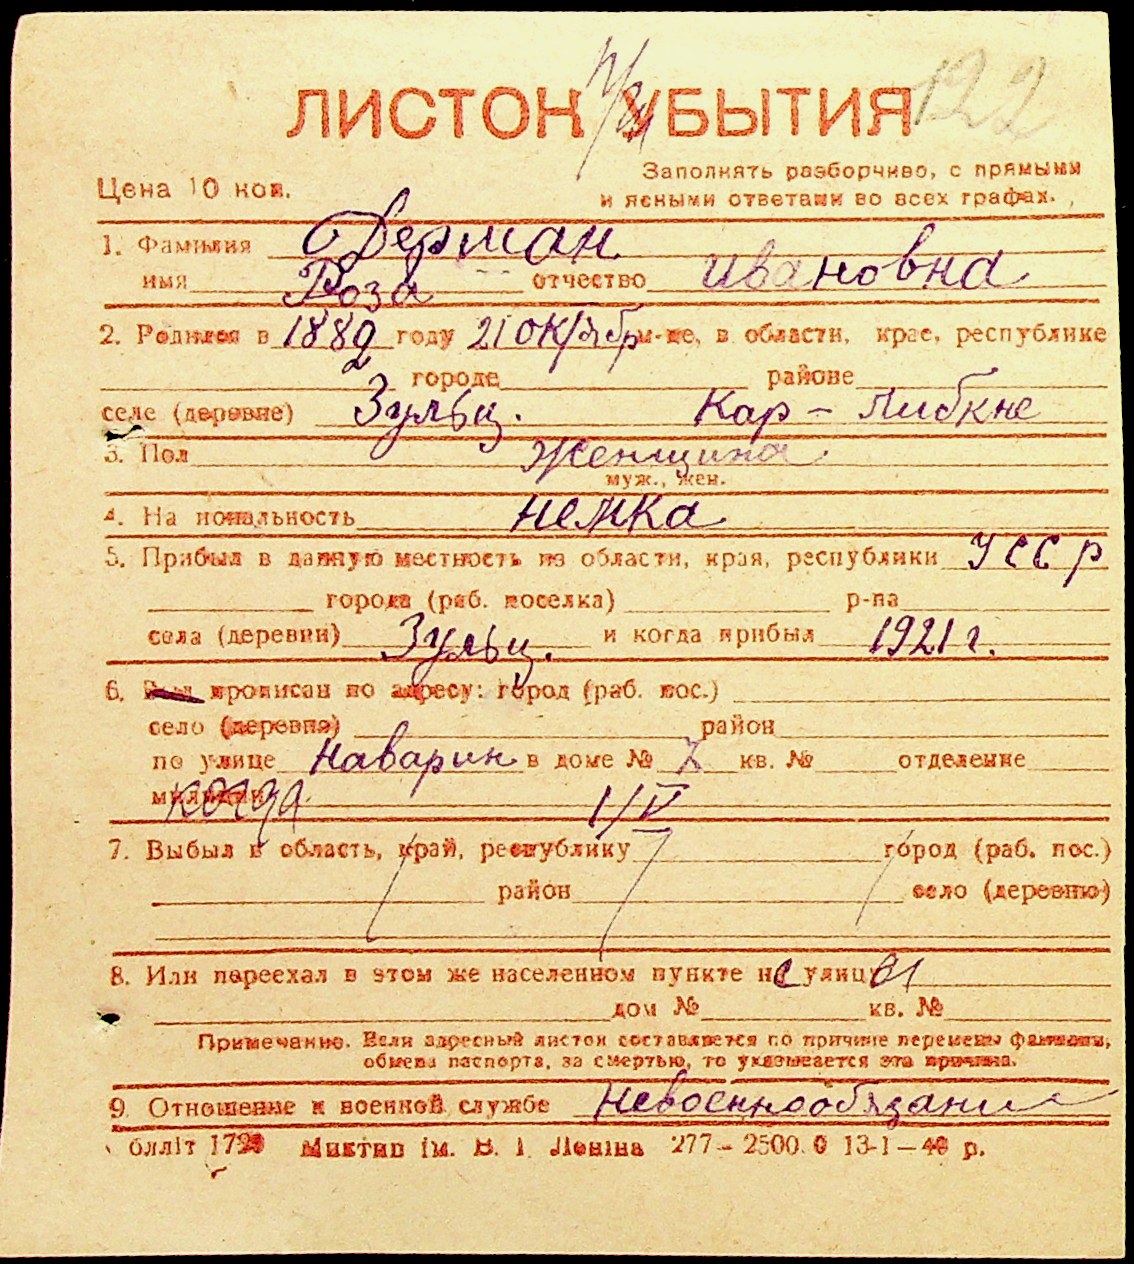 122
ЛИСТОК УБЫТИЯ
Цена 10 коп.
Заполнять разборчиво, с прямыми
и ясными ответами во всех графах.
1. Фамилия Дерман
имя Роза отчество Ивановна
2. Родился в 1889 году 21 октябр м-це, в области, крае, республике
городе районе
селе (деревне) Зульц. Кар - Либкне
3. Пол Женщина
муж., жен.
4. Национальность немка
5. Прибыл в данную местность из области, края, республики УССР
города (раб. поселка) р-на
села (деревни) Зульц. и когда прибыл 1921 г.
6. прописан по адресу: город (раб. пос.)
село (деревня) район
по улице Наварин в доме № 7 кв. № отделение
милиции когда 1/V
7. Выбыл в область, край, республику город (раб. пос.)
район село (деревню)
8. Или переехал в этом же населенном пункте на улицу
дом № кв. №
Примечание. Если адресный листок составляется по причине перемены фамилии,
обмена паспорта, за смертью, то указывается эта причина.
9. Отношение к военной службе Невоеннообязани
блліт Миктип ім. В. І. Леніна 277 - 2500.0 13-1-40 р.